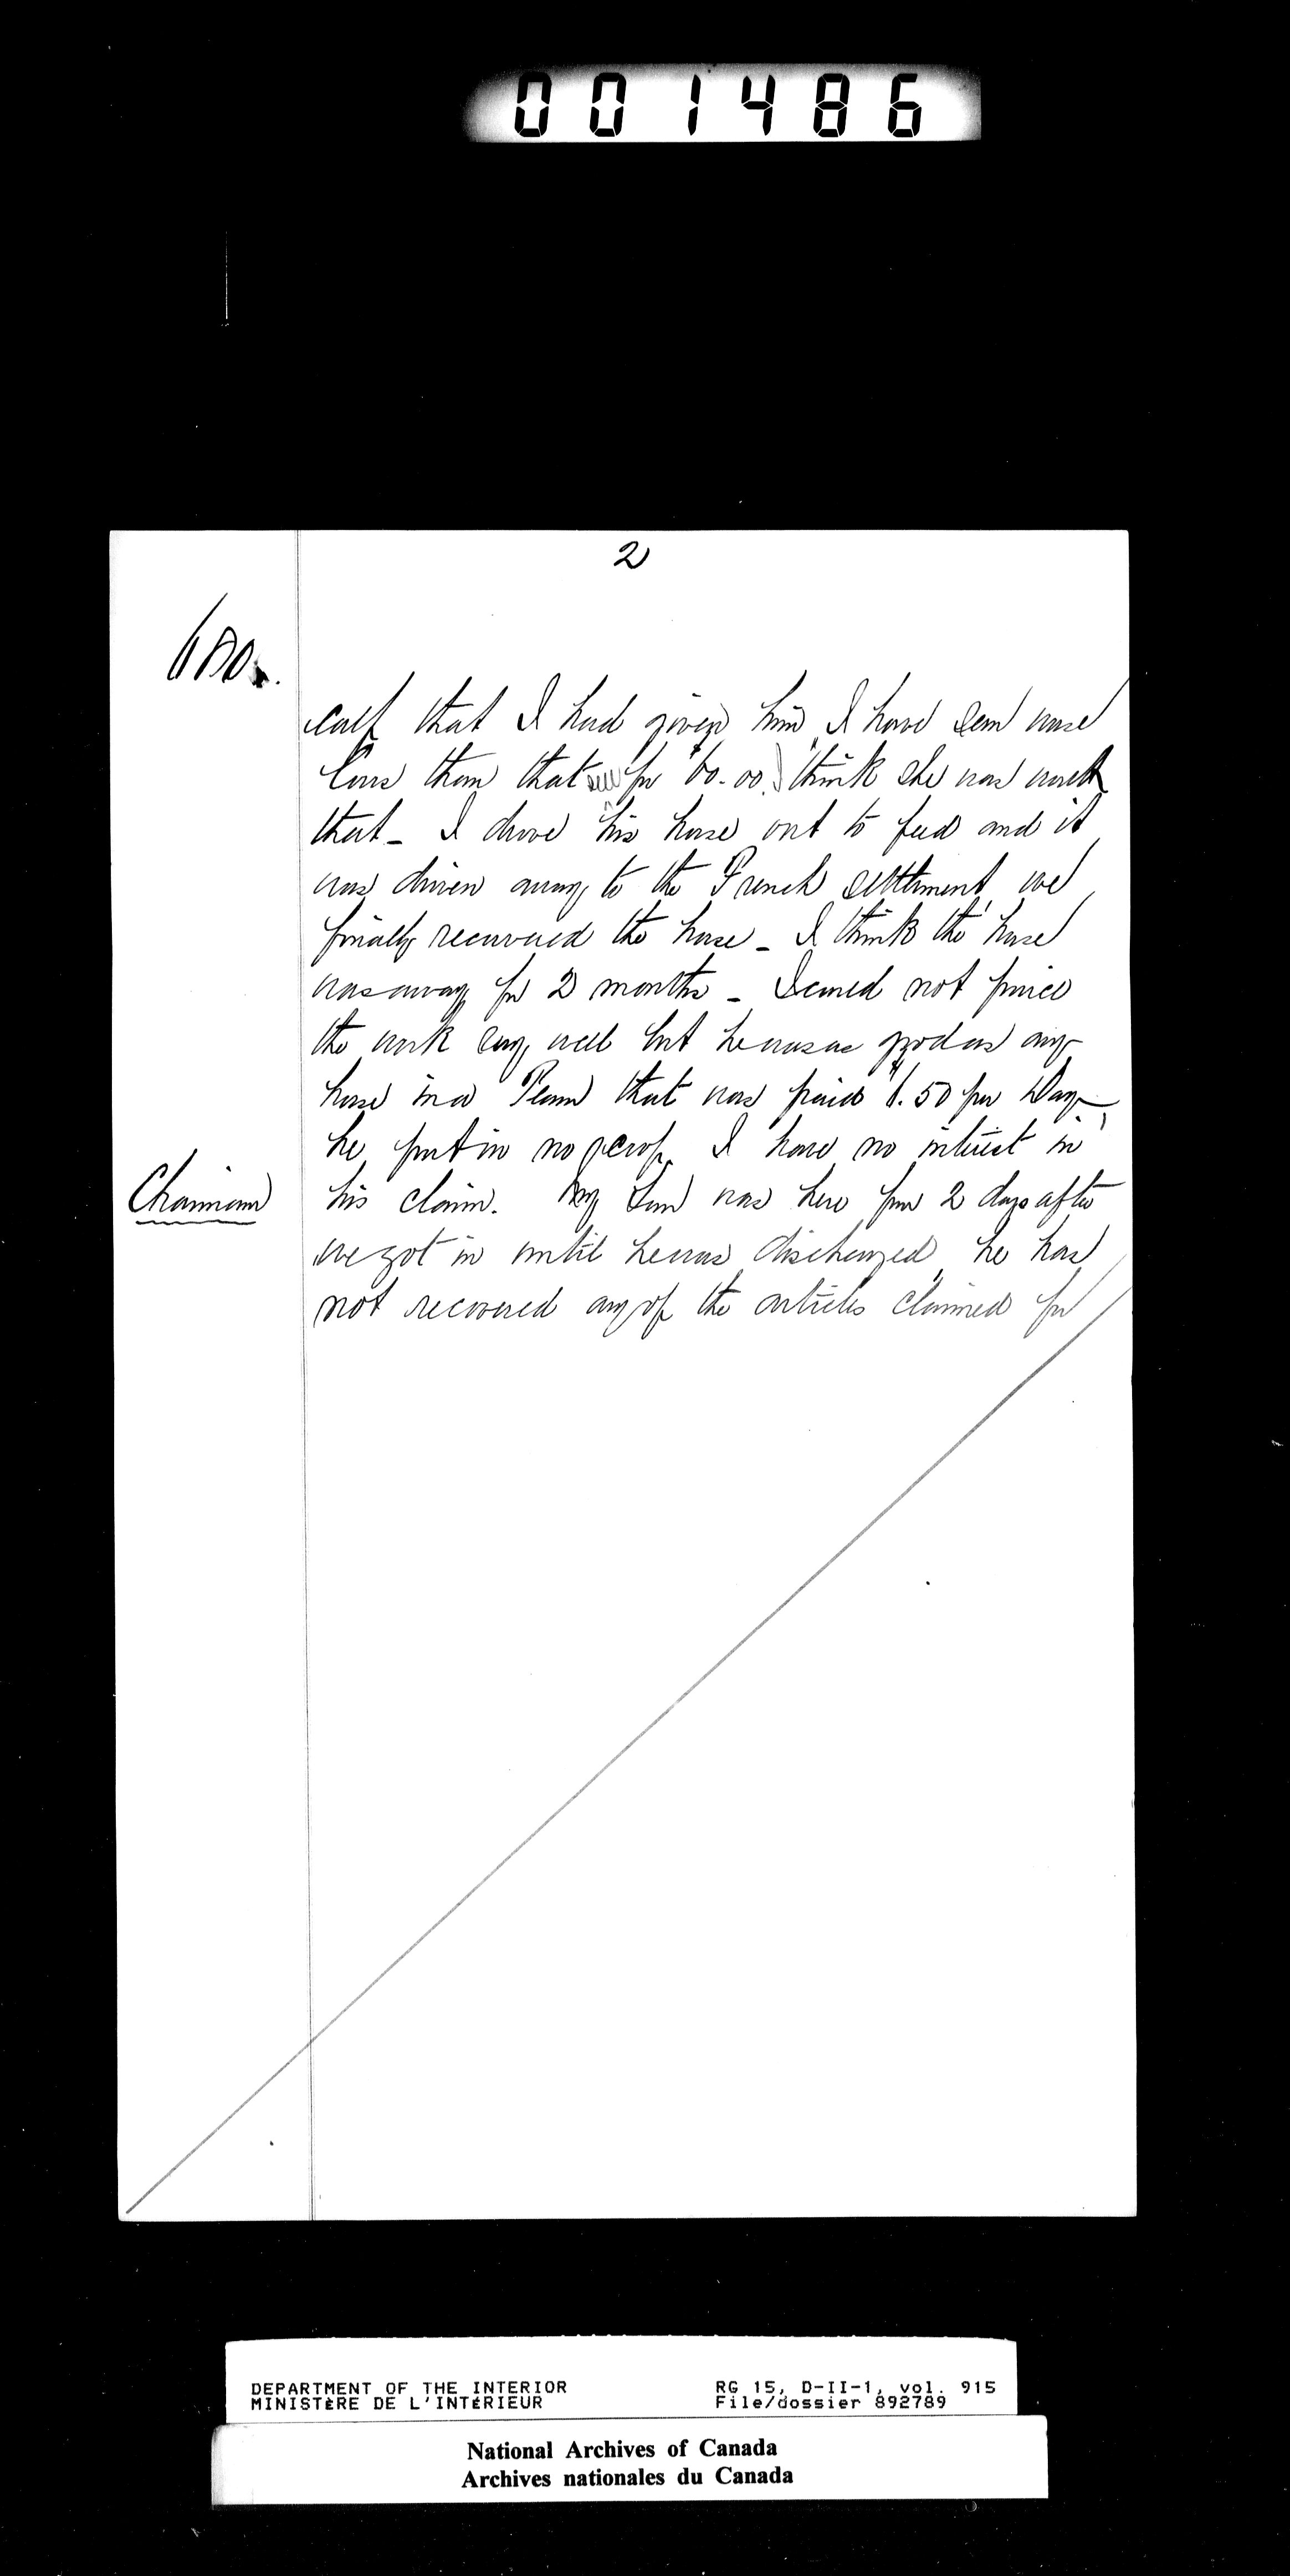 001486
2
680.
calf that I had given him I have seen worse
Cows than that for 60.00 think she was worth
that - I drove his horse out to feed and it
was driven away to the French settlement, we
finally recovered the horse - I think the horse
was away for 2 months - I could not price
the work very well but he was as good as any
horse in a Team that was paid 6.50 per Day
he put in no crop, I have no interest in
Chairman his claim. My Son was here for 2 days after
we got in until he was discharged, he has
not recovered any of the articles claimed for
DEPARTMENT OF THE INTERIOR RG 15, D-II-1, vol. 915
MINISTÈRE DE L'INTÉRIEUR File/dossier 892789
National Archives of Canada
Archives nationales du Canada